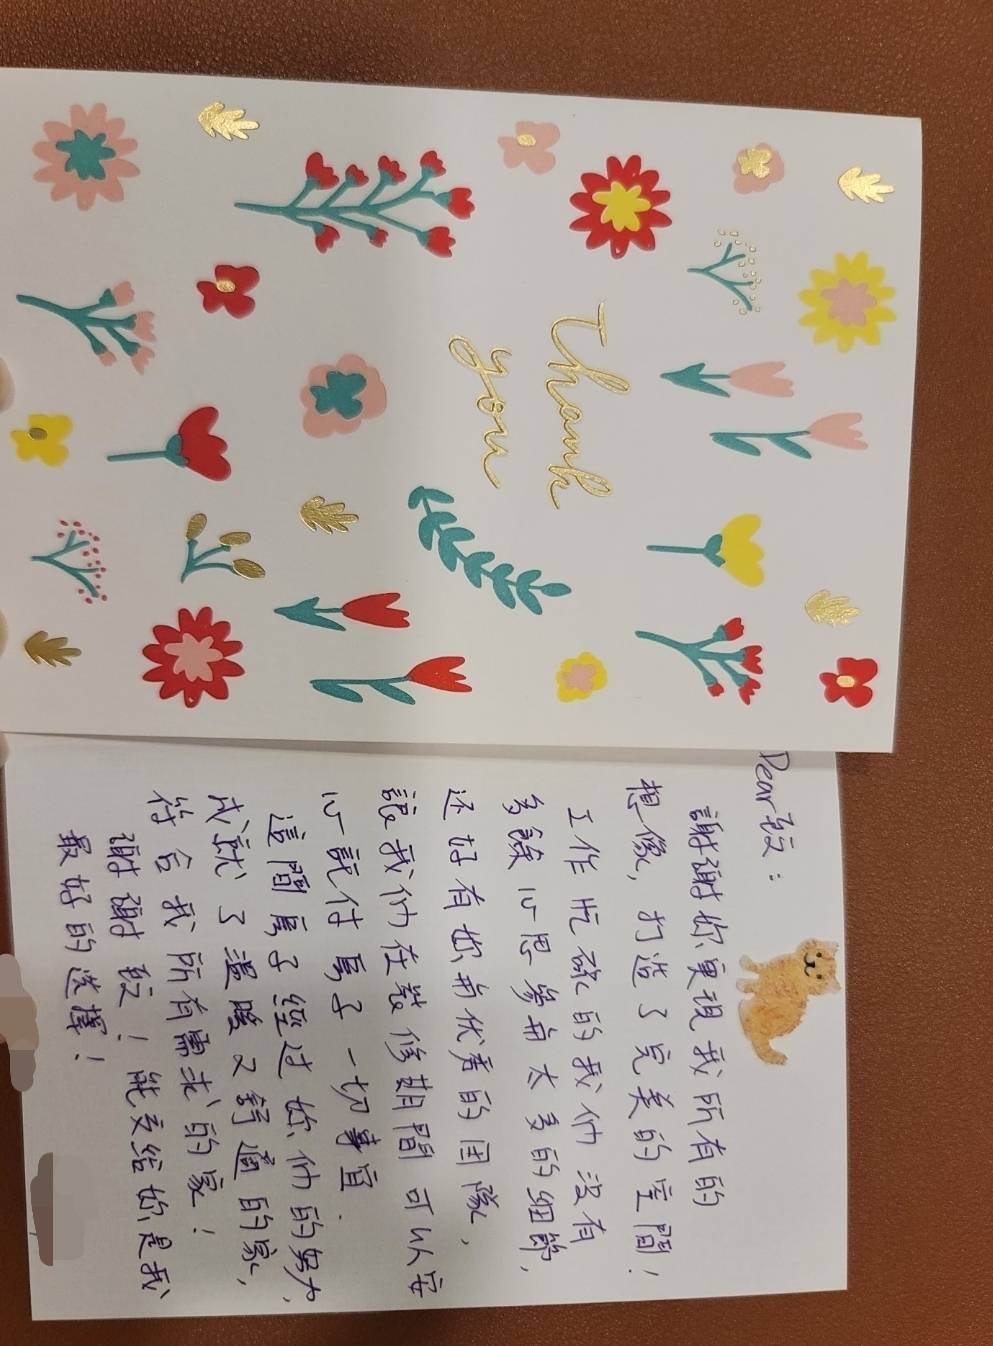 Thank
you
Dear
謝謝妳實現我所有的
想像，打造了完美的空間！
工作忙碌的我们沒有
多餘心思參与太多的細節，
还好有妳与优秀的团隊，
讓我们在裝修期間可以安
心託付房子一切事宜.
這間房子經过妳们的努力，
成就了温暖又舒適的家，
符合我所有需求的家！
謝謝！能交給妳是我
最好的选擇！